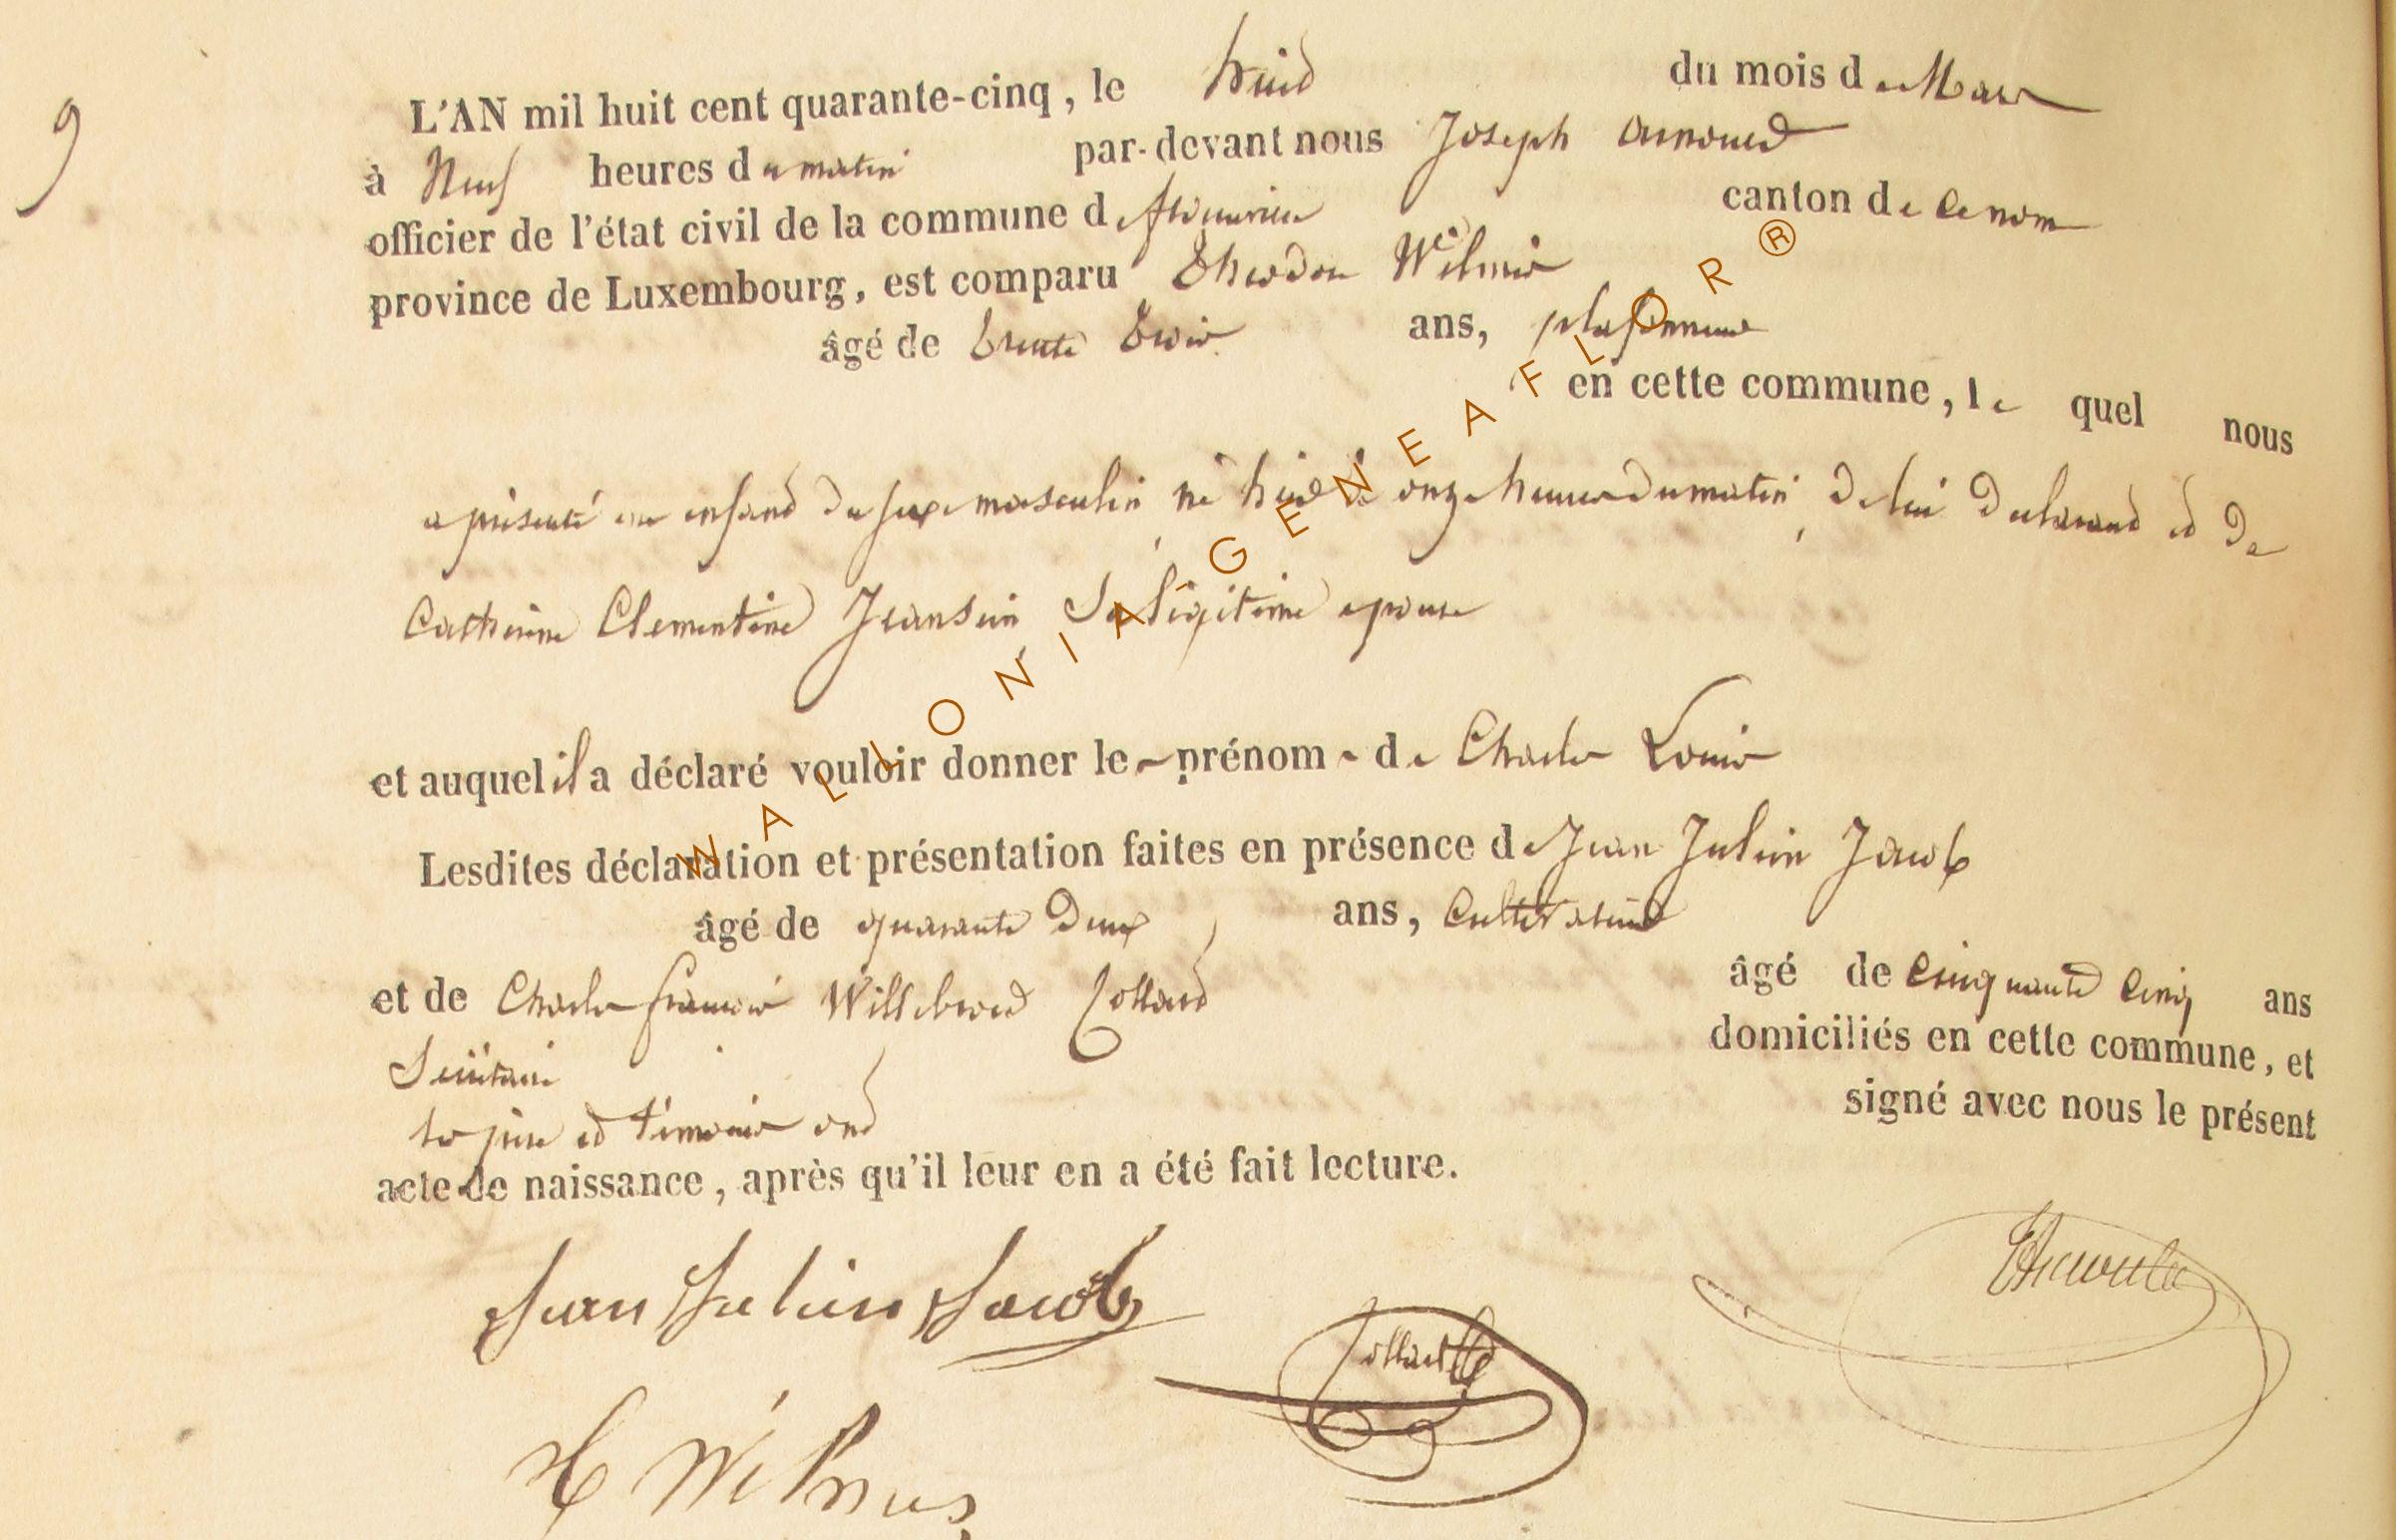 9
L'AN mil huit cent quarante-cinq, le huit du mois de Mars
à Neuf heures du matin par-devant nous Joseph Arnould
officier de l'état civil de la commune de canton de
province de Luxembourg, est comparu Theodore Wilmus
âgé de trente trois ans, plafonneur
en cette commune, le quel nous
a présenté un enfant du sexe masculin né hier à onze heures du matin, de lui déclarant et de
Catherine Clementine Jeansin Sa légitime épouse
et auquel il a déclaré vouloir donner le prénom de Charles Louis
Lesdites déclaration et présentation faites en présence de Jean Julien Jacob
âgé de quarante deux ans, Cultivateur
et de Charles françois Willebrord Collard âgé de cinquante cinq ans
Secrétaire domiciliés en cette commune, et
les père et témoins ont signé avec nous le présent
acte de naissance, après qu'il leur en a été fait lecture.
Jean Julien Jacob
Collard
Wilmus
WALLONIA GENEAFLOR ®